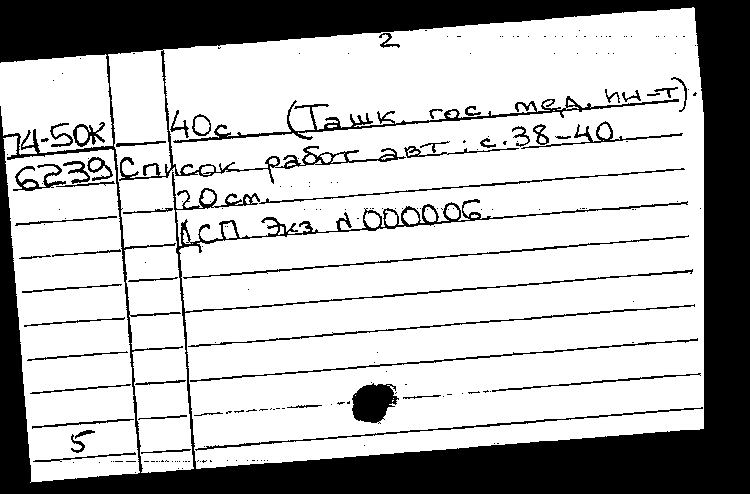 2
74-50К 40с. (Ташк. гос. мед. ин-т).
6239 Список работ авт.: с.38-40.
20 см.
ДСП. Экз. N 000006.
5